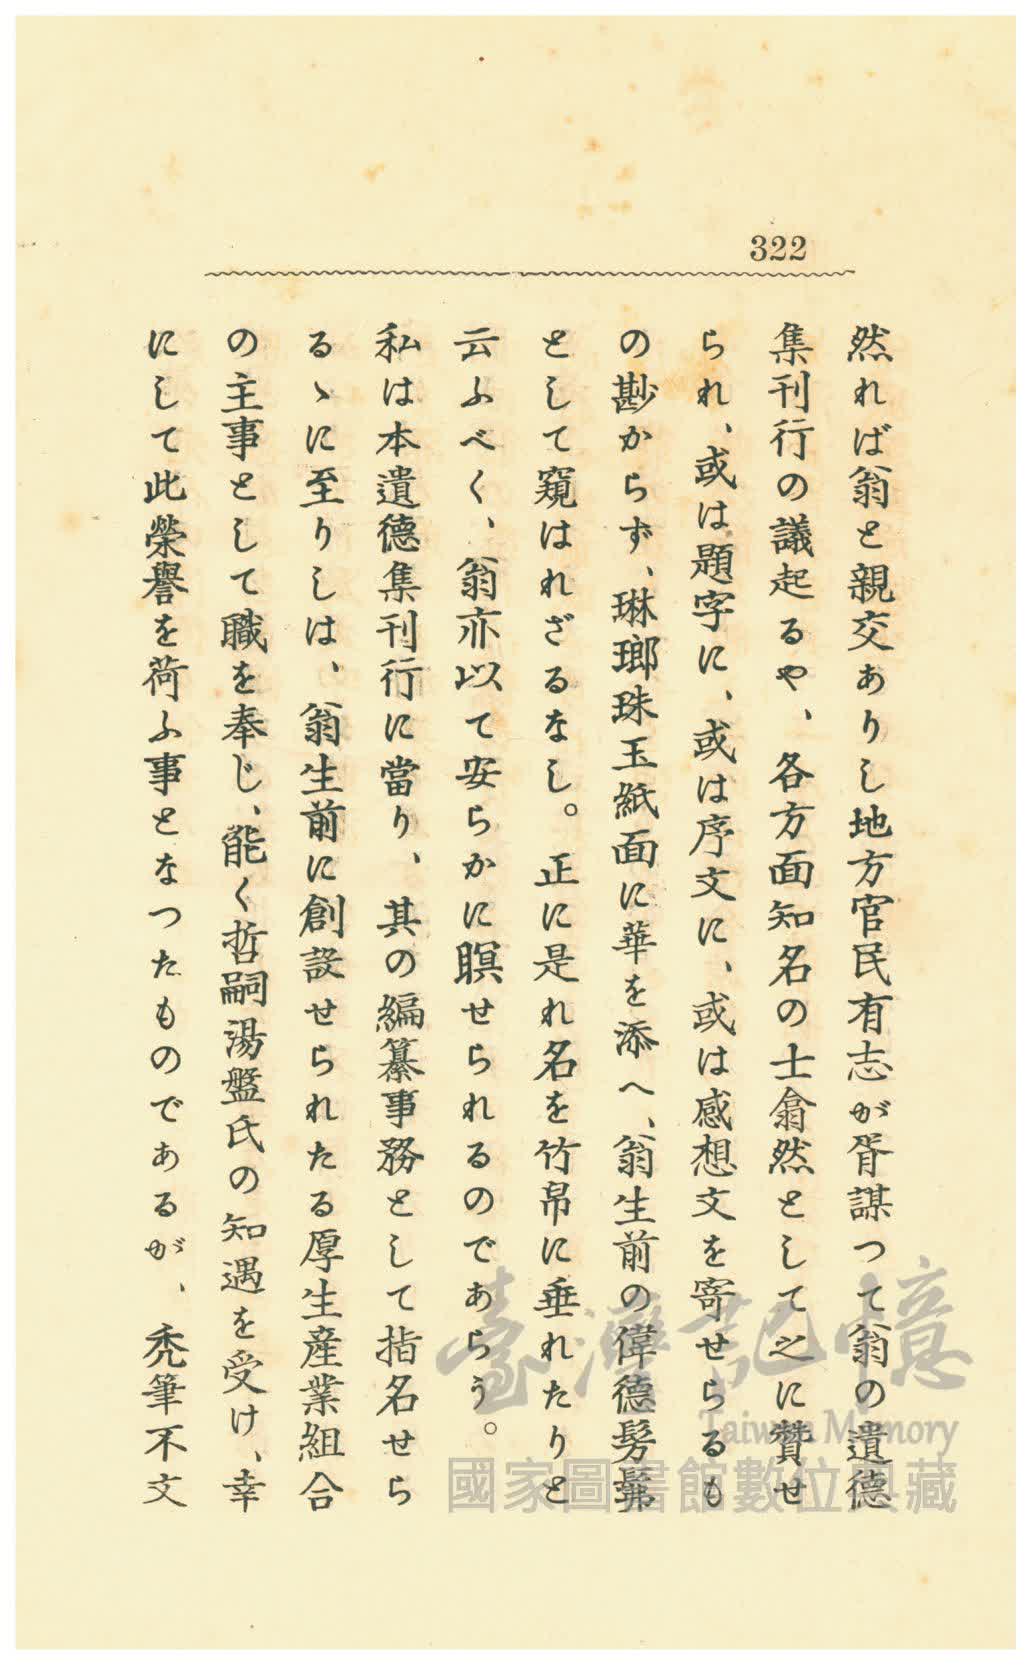 322
然れば翁と親交ありし地方官民有志が胥謀つて翁の遺德
集刊行の議起るや、各方面知名の士翕然として之に贊せ
られ、或は題字に、或は序文に、或は感想文を寄せらるも
の尠からず、琳瑯珠玉紙面に華を添へ、翁生前の偉德髣髴
として窺はれざるなし。正に是れ名を竹帛に垂れたりと
云ふべく、翁亦以て安らかに瞑せられるのであらう。
私は本遺德集刊行に當り、其の編纂事務として指名せら
るゝに至りしは、翁生前に創設せられたる厚生產業組合
の主事として職を奉じ、能く哲嗣湯盤氏の知遇を受け、幸
にして此榮譽を荷ふ事となつたものであるが、禿筆不文
臺灣記憶
Taiwan Memory
國家圖書館數位典藏